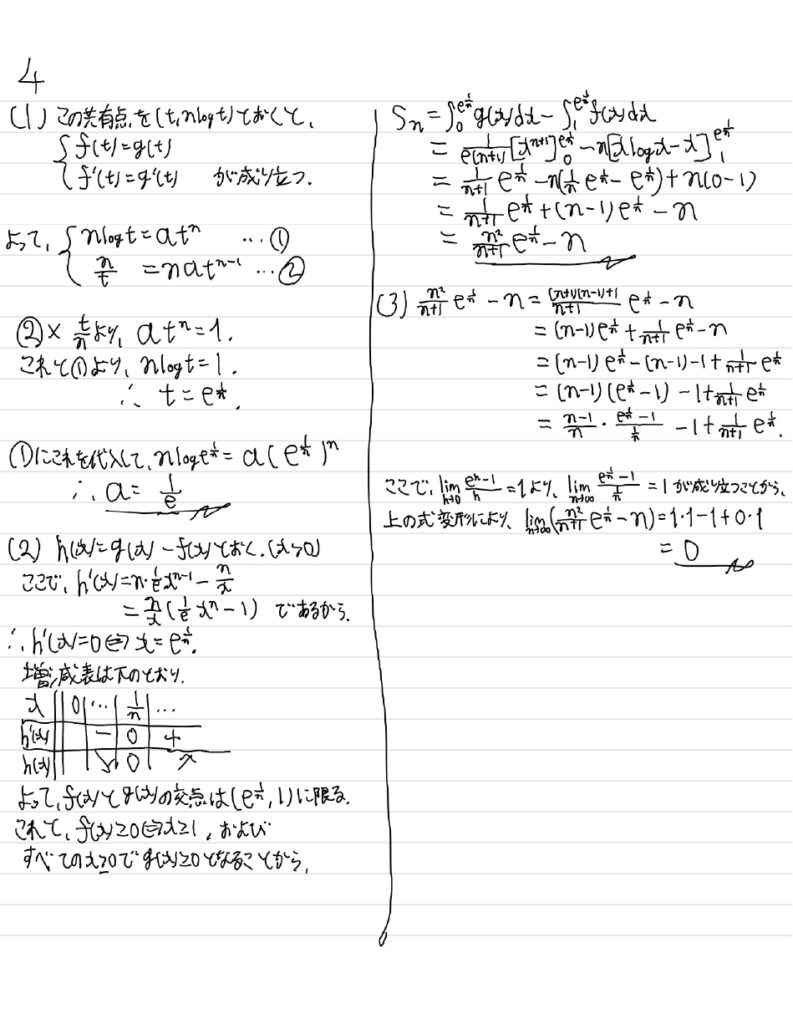 4
(1) この共有点を(t, nlogt)とおくと、
{ f(t)=g(t)
f'(t)=g'(t) が成り立つ.
よって、{ nlogt=atⁿ …①
n/t =natⁿ⁻¹ …②
②×t/nより、atⁿ=1.
これと①より、nlogt=1.
∴ t=e^{1/n}.
①にこれを代入して、nloge^{1/n}=a(e^{1/n})ⁿ
∴ a=1/e
(2) h(x)=g(x)-f(x)とおく.(x>0)
ここで、h'(x)=n・1/e xⁿ⁻¹-n/x
=n/x(1/e xⁿ-1) であるから、
∴h'(x)=0⇔x=e^{1/n}.
増減表は下のとおり.
x 0 … 1/n …
h'(x) - 0 +
h(x) ↘ 0 ↗
よって、f(x)とg(x)の交点は(e^{1/n}, 1)に限る.
これと、f(x)≥0⇔x≥1、および
すべてのx≥0でg(x)≥0となることから、
Sn=∫₀^{e^{1/n}}g(x)dx-∫₁^{e^{1/n}}f(x)dx
=1/e(n+1)[xⁿ⁺¹]₀^{e^{1/n}}-n[xlogx-x]₁^{e^{1/n}}
=1/n+1 e^{1/n}-n(1/n e^{1/n}-e^{1/n})+n(0-1)
=1/n+1 e^{1/n}+(n-1)e^{1/n}-n
=n²/n+1 e^{1/n}-n
(3) n²/n+1 e^{1/n}-n=(n+1)(n-1)+1/n+1 e^{1/n}-n
=(n-1)e^{1/n}+1/n+1 e^{1/n}-n
=(n-1)e^{1/n}-(n-1)-1+1/n+1 e^{1/n}
=(n-1)(e^{1/n}-1)-1+1/n+1 e^{1/n}
=n-1/n・e^{1/n}-1/(1/n) -1+1/n+1 e^{1/n}.
ここで、lim_{h→0} eʰ-1/h=1より、lim_{n→∞} e^{1/n}-1/(1/n)=1が成り立つことから、
上の式変形により、lim_{n→∞}(n²/n+1 e^{1/n}-n)=1・1-1+0・1
=0